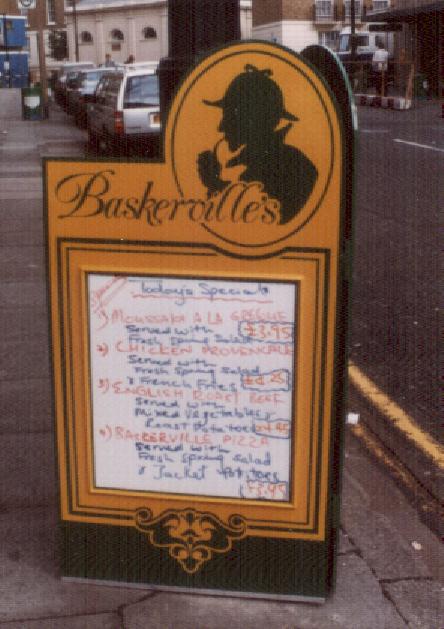 Baskerville's
Today's Specials
1) MOUSSAKA A LA GREQUE
Served with £3.95
Fresh Spring Salad
2) CHICKEN PROVENCALE
Served with
Fresh Spring Salad
& French Fries
3) ENGLISH ROAST BEEF
Served with
Mixed Vegetables
Roast Potatoes
4) BASKERVILLE PIZZA
Served with
Fresh Spring Salad
& Jacket Potatoes
£3.95